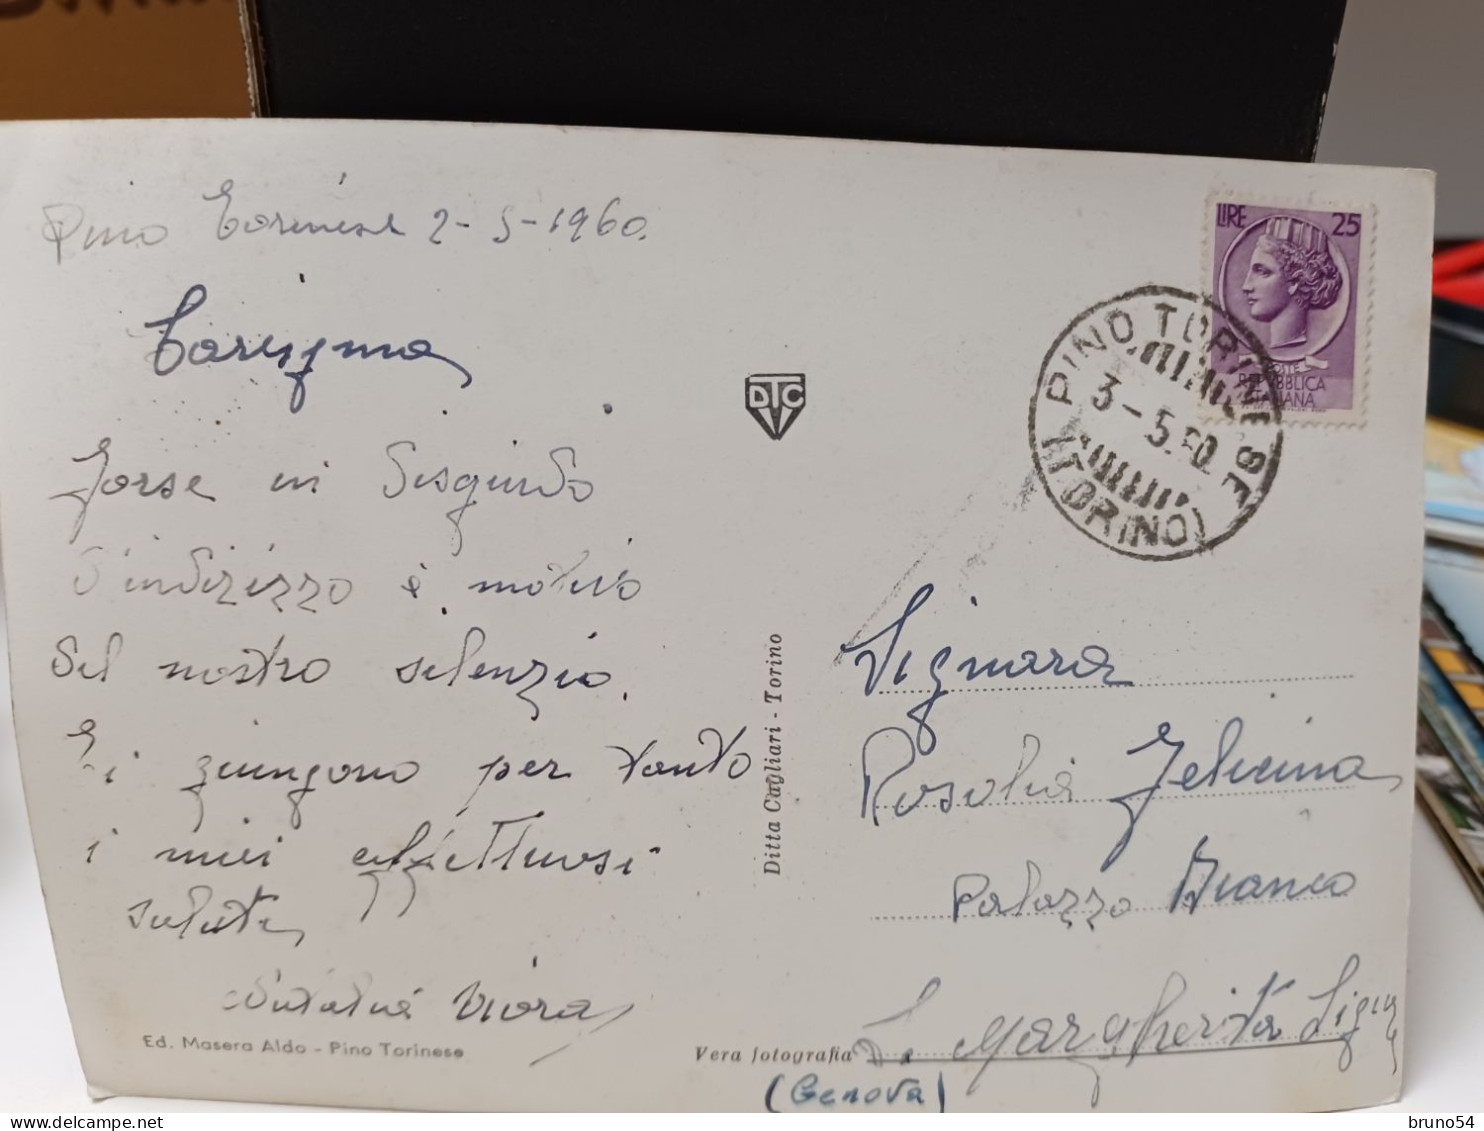 Pino Torinese 2-5-1960.
Carissima
forse in disguido
d'indirizzo è motivo
del nostro silenzio.
Ti giungono per tanto
i miei affettuosi
saluti
Viora
Ed. Masera Aldo - Pino Torinese
DTC
Ditta Cagliari - Torino
Vera fotografia
LIRE 25
POSTE
REPUBBLICA
ITALIANA
PINO TORINESE
3-5.60
(TORINO)
Signora
Rosolia Felicina
Palazzo Bianco
S. Margherita Ligure
(Genova)
bruno54